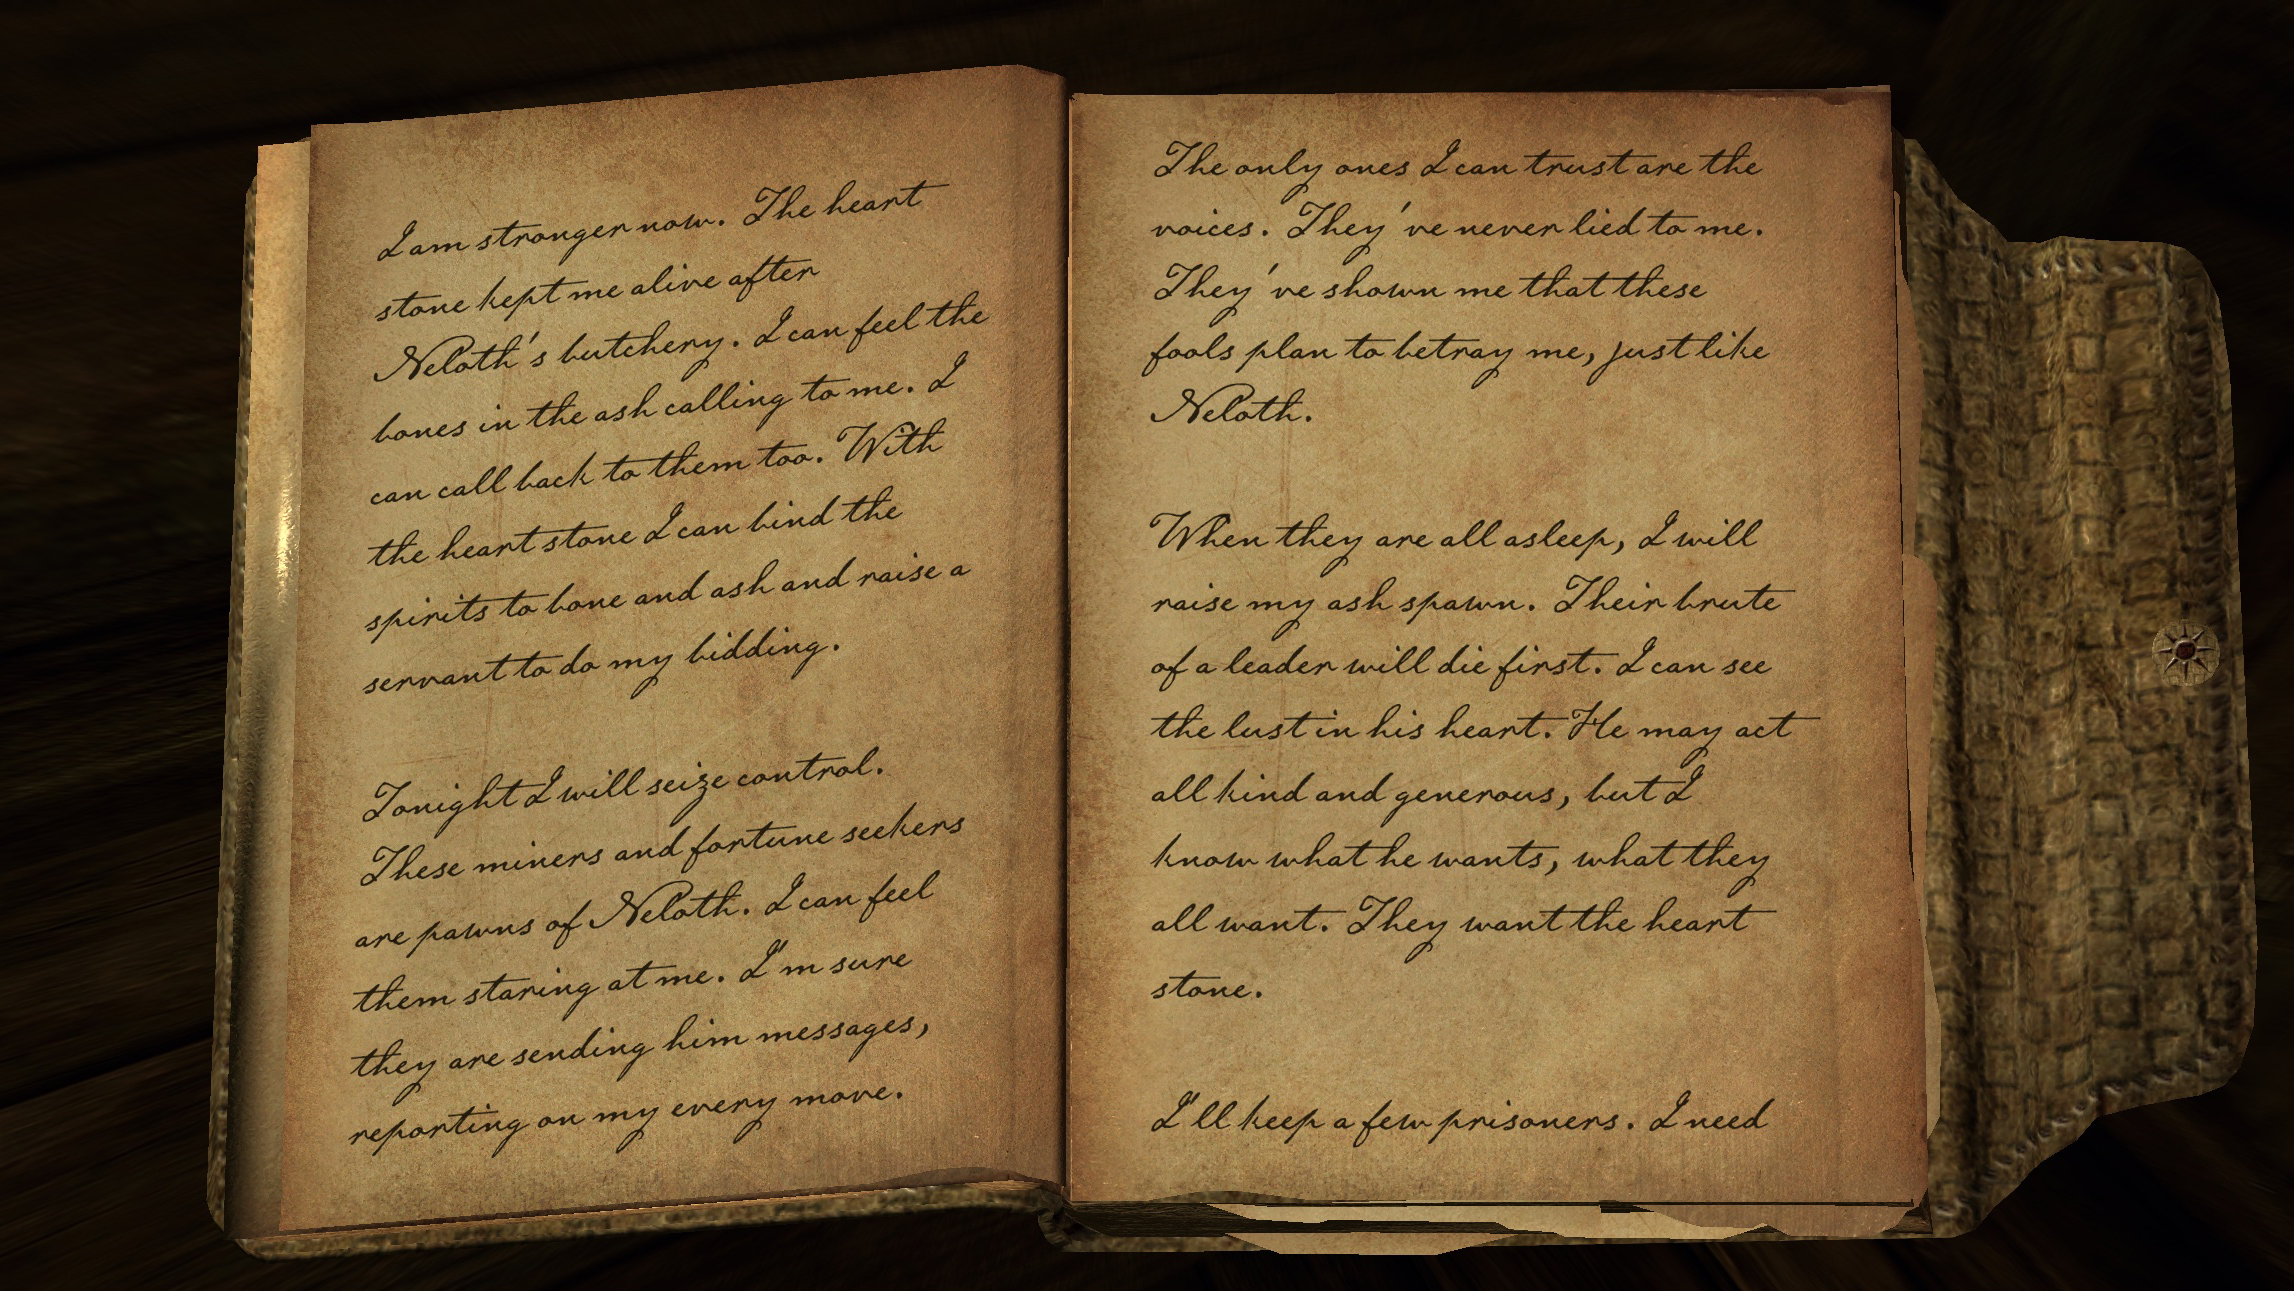 I am stronger now. The heart
stone kept me alive after
Neloth's butchery. I can feel the
bones in the ash calling to me. I
can call back to them too. With
the heart stone I can bind the
spirits to bone and ash and raise a
servant to do my bidding.
Tonight I will seize control.
These miners and fortune seekers
are pawns of Neloth. I can feel
them staring at me. I'm sure
they are sending him messages,
reporting on my every move.
The only ones I can trust are the
voices. They've never lied to me.
They've shown me that these
fools plan to betray me, just like
Neloth.
When they are all asleep, I will
raise my ash spawn. Their brute
of a leader will die first. I can see
the lust in his heart. He may act
all kind and generous, but I
know what he wants, what they
all want. They want the heart
stone.
I'll keep a few prisoners. I need